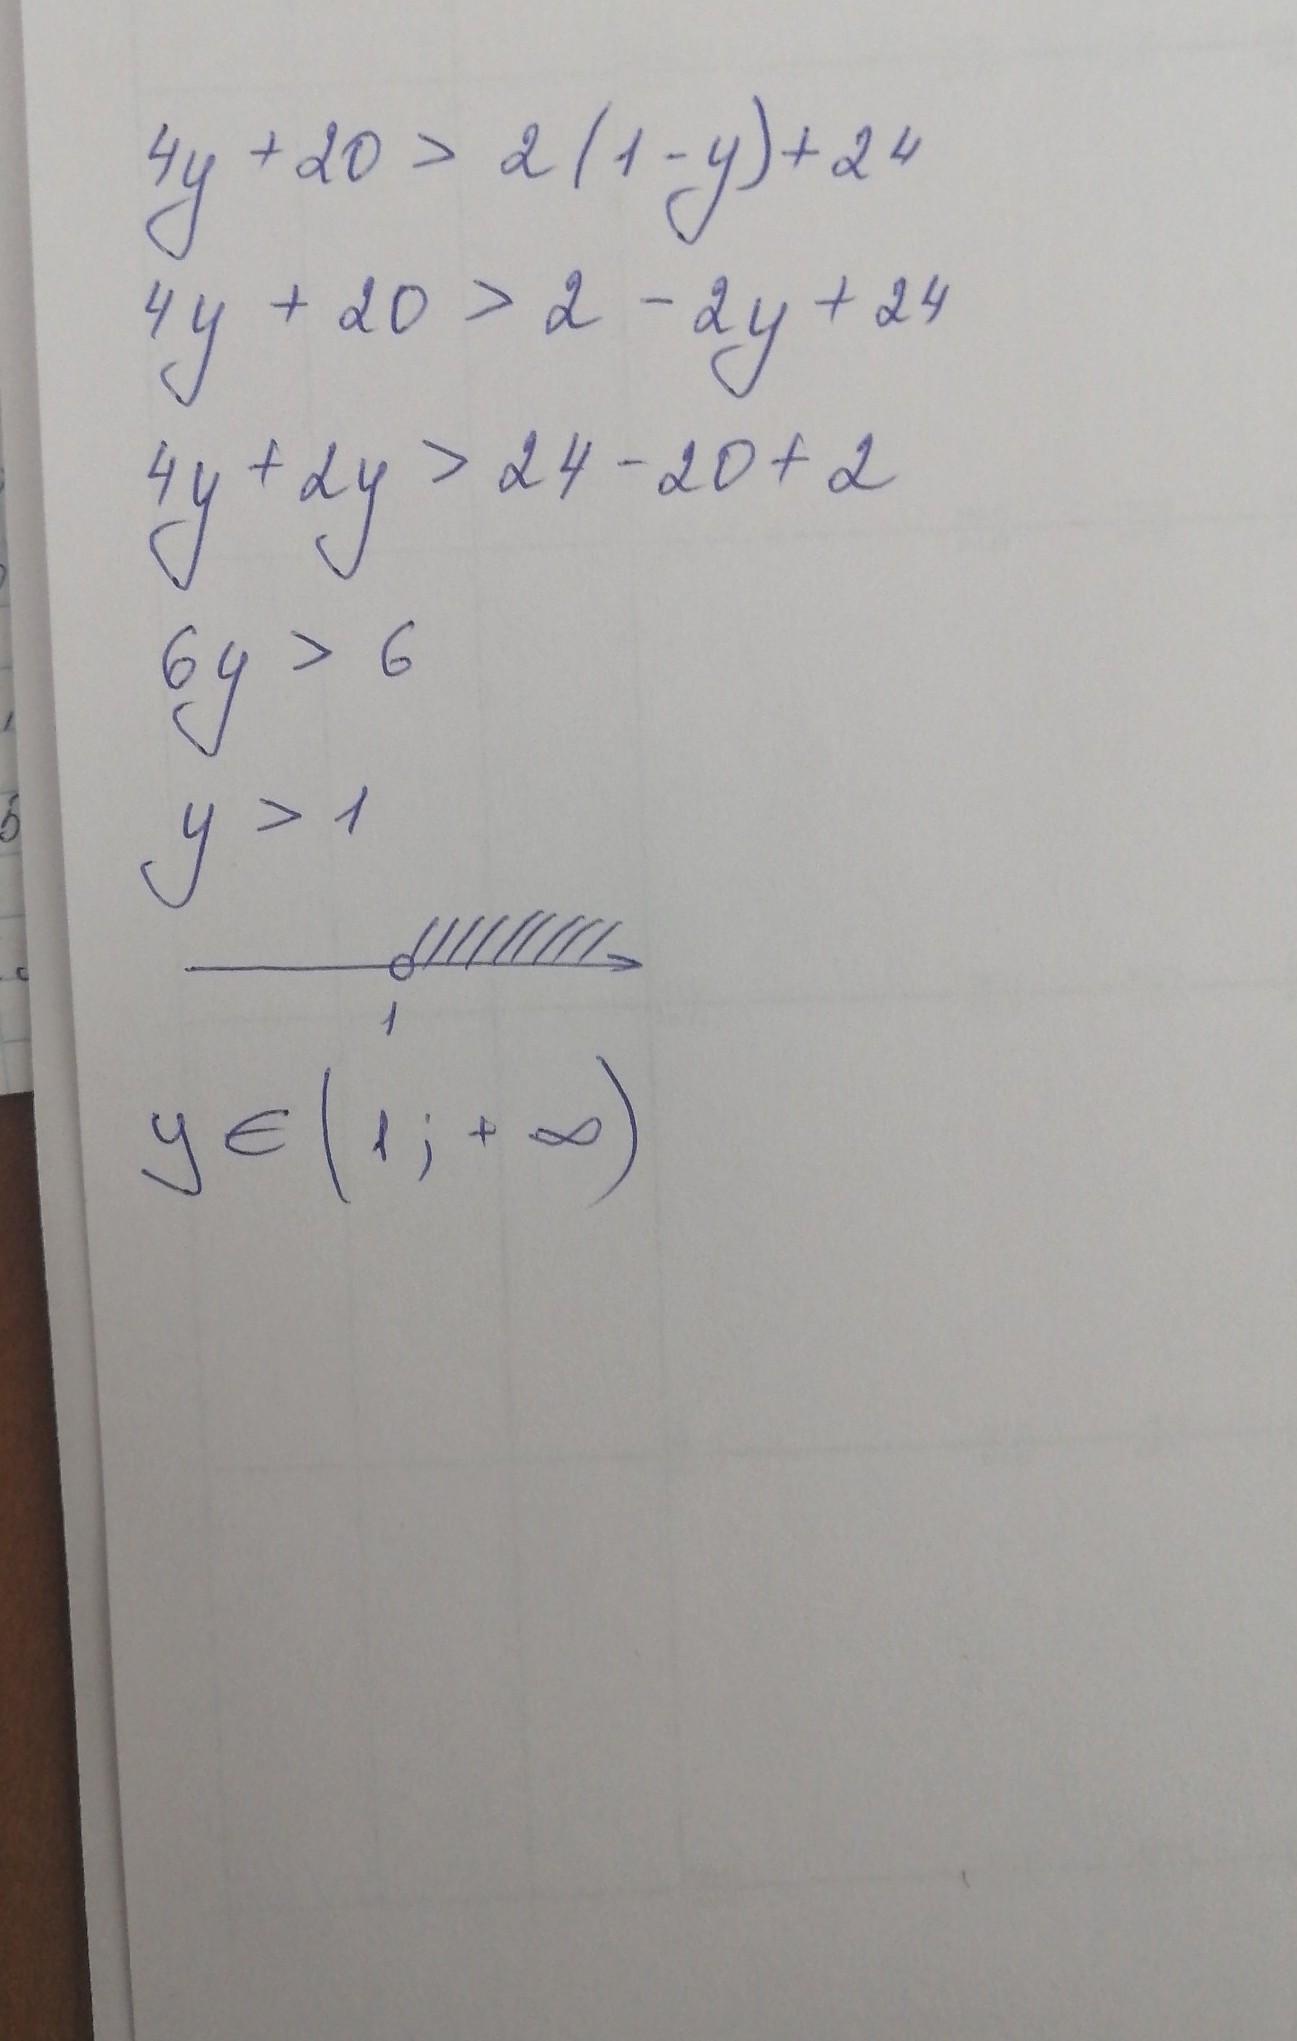 4y + 20 > 2(1 - y) + 24
4y + 20 > 2 - 2y + 24
4y + 2y > 24 - 20 + 2
6y > 6
y > 1
1
y ∈ (1; + ∞)